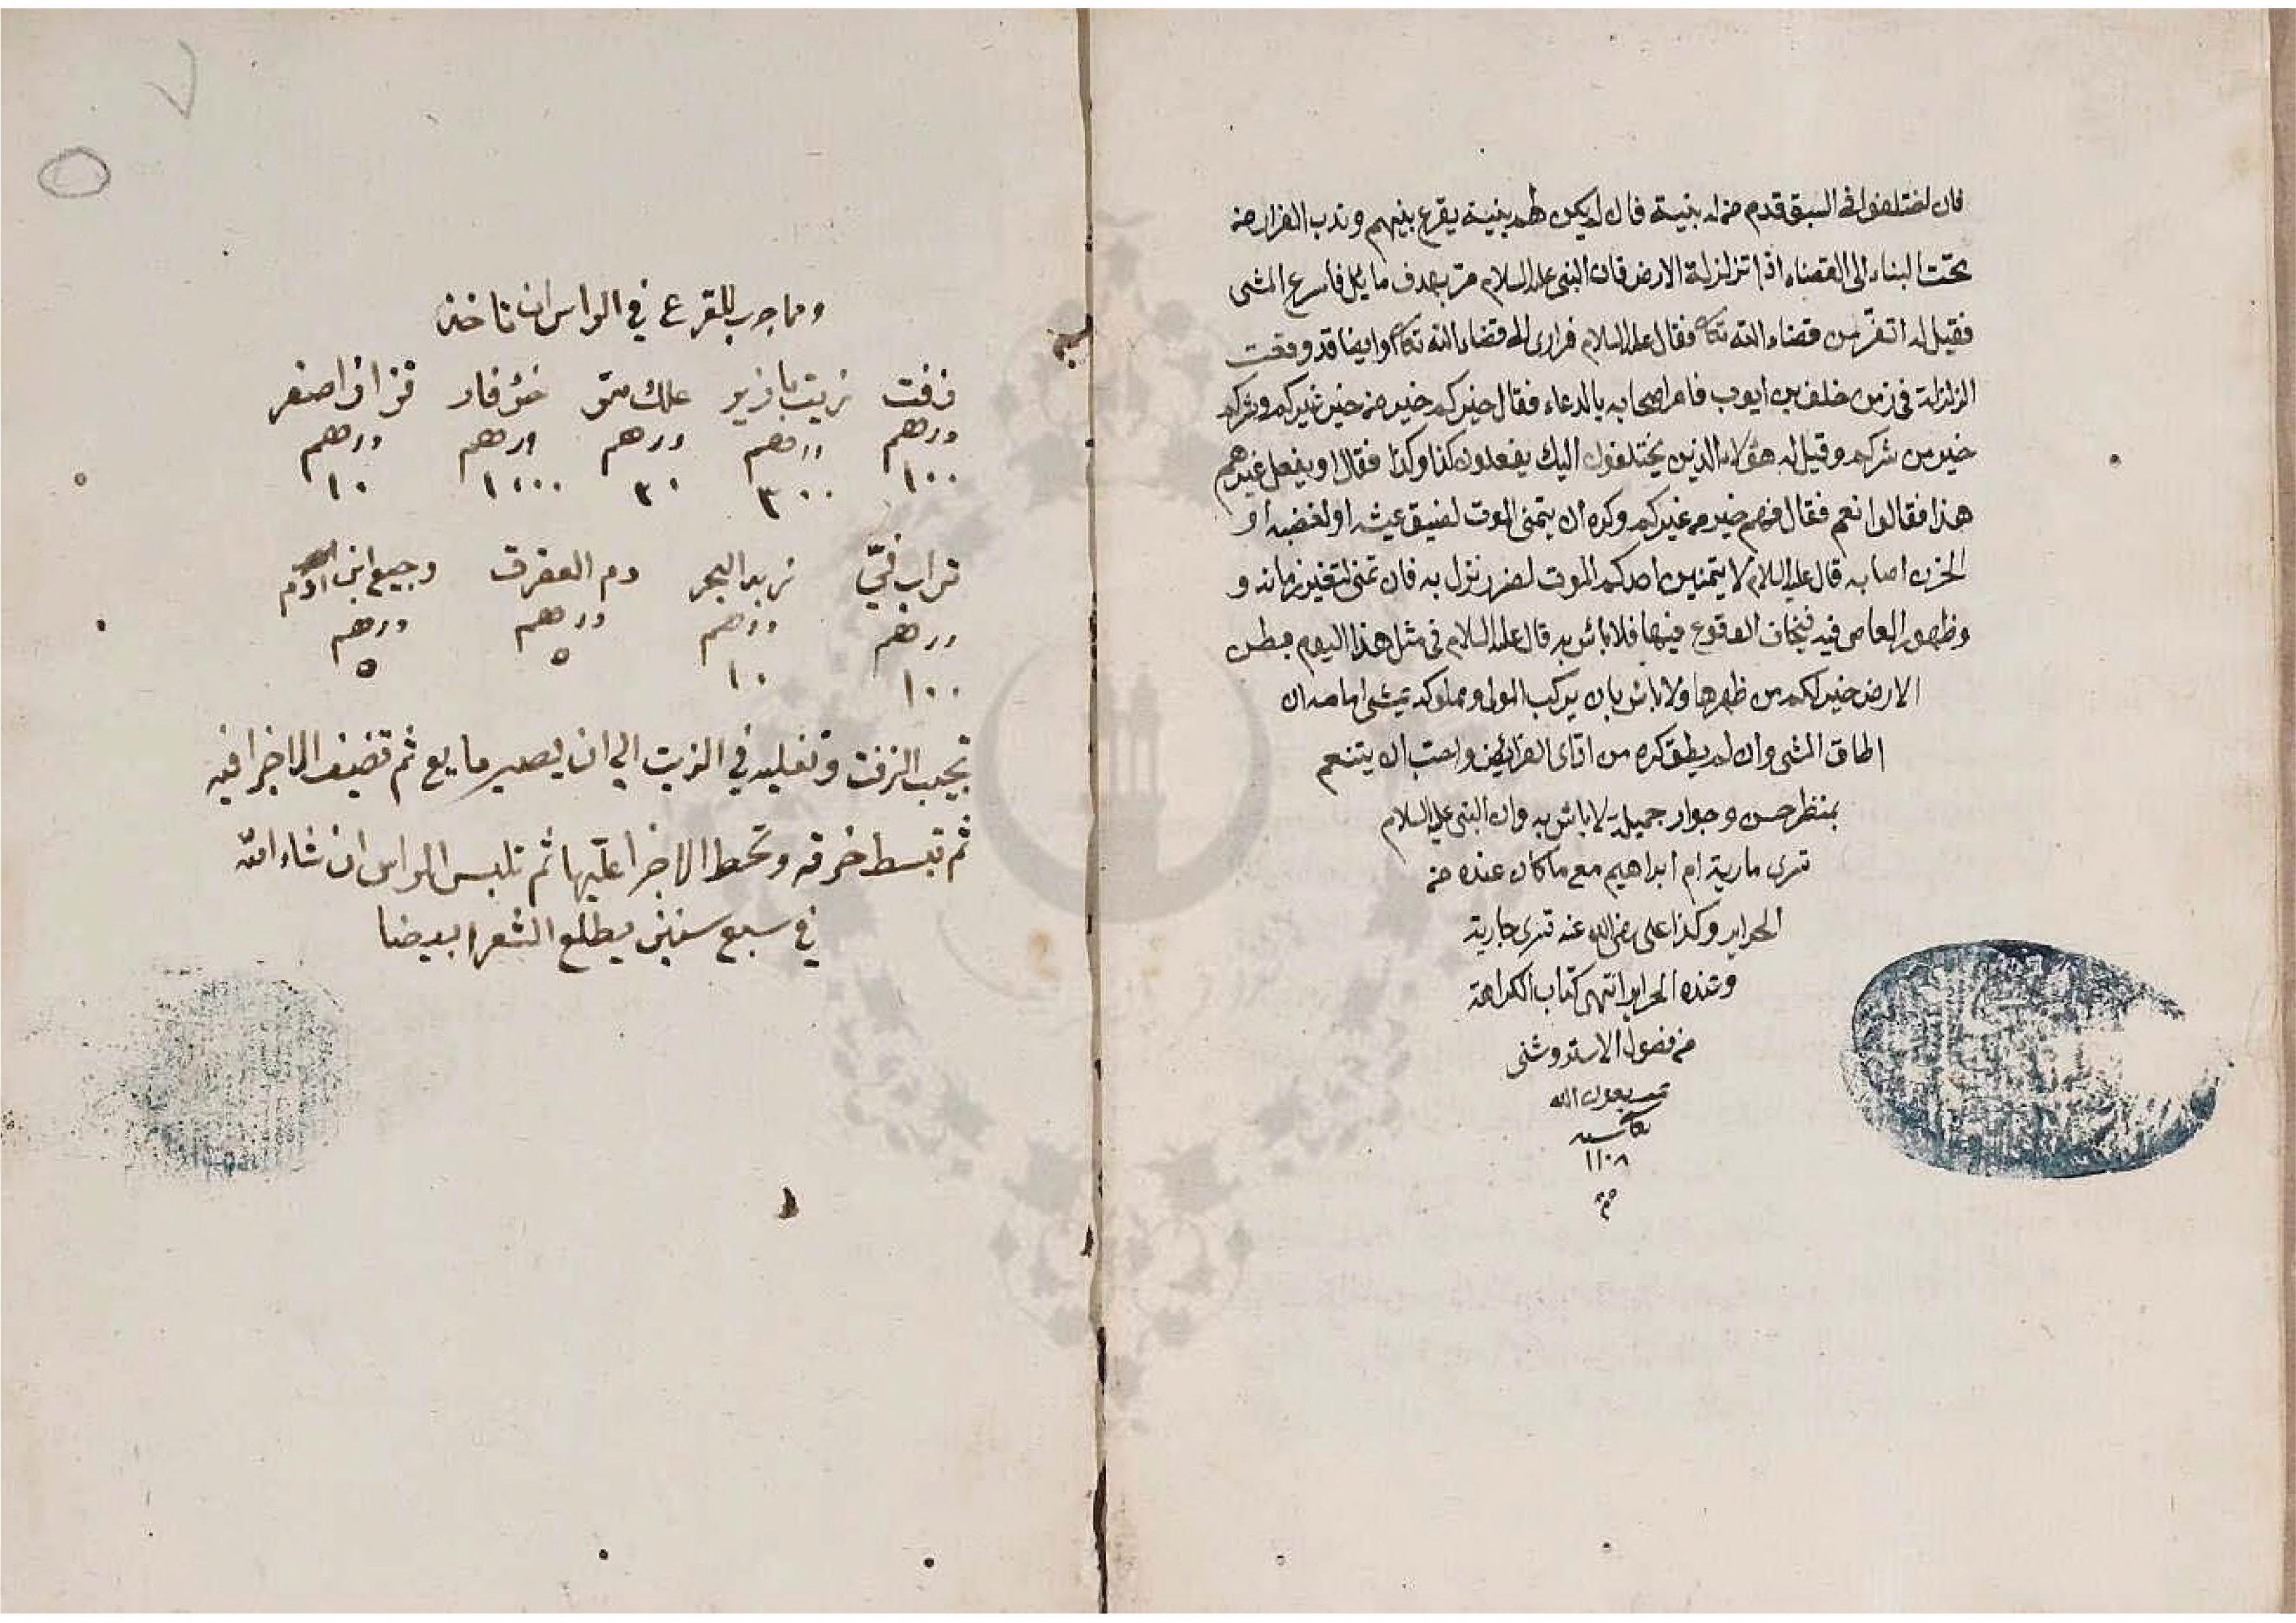 فان اختلفوا فى السبق قدم من له بينة فان لم يكن لهم بينة يقرع بينهم وندب الفرار من
تحت البناء الى الفضاء اذا تزلزلة الارض فان النبى عليه السلام مرّ بهدف مايل فاسرع المشى
فقيل له اتفرّ من قضاء الله تعالى فقال عليه السلام فرارى الى قضاء الله تعالى وايضا قد وقعت
الزلزلة فى زمن خلف بن ايوب فامر اصحابه بالدعاء فقال خيركم خير من خير غيركم وشركم
خير من شركم وقيل له هؤلاء الذين يختلفون اليك يفعلون كذا وكذا فقال او يفعل غيرهم
هذا فقالوا نعم فقال فهم خير من غيركم وكره ان يتمنى الموت لضيق عيشه او لغضبه او
الحزن اصابه قال عليه السلام لا يتمنين احدكم الموت لضر نزل به فان تمنى لتغير زمانه و
وظهور المعاصى فيه فيخاف الوقوع فيها فلا باس به قال عليه السلام فى مثل هذا اليوم بطن
الارض خير لكم من ظهرها ولا باس بان يركب المولى ومملوكه يمشى امامه ان
اطاق المشى وان لم يطق كره من ادى الفرائض واحب ان يتنعم
بمنظر حسن وجوار جميلة لا باس به وان النبى عليه السلام
تسرى مارية ام ابراهيم مع ما كان عنده من
الحراير وكذا على رضى الله عنه تسرى جارية
وعنده الحراير انتهى كتاب الكراهة
من فصول الاستروشنى
تمت بعون الله
تعالى سنه
١١٠٨
م
ومما جرب للقرع في الراس ان تاخذ
زفت زيت علك خرؤ فار اصفر
درهم درهم درهم درهم درهم
١٠٠ ٣٠٠ ٣٠ ١٠٠٠ ١٠
تراب زبد البحر دم العقرق وجميع ابن ادم
درهم درهم درهم درهم
١٠٠ ١٠ ٥ ٥
تجيب الزفت وتغليه في الزيت الى ان يصير مايع ثم تضيف الاجزا فيه
ثم تبسط خرقه وتحط الاجزا عليها ثم تلبس الراس ان شاء الله
في سبع سنين يطلع الشعر ابيضا